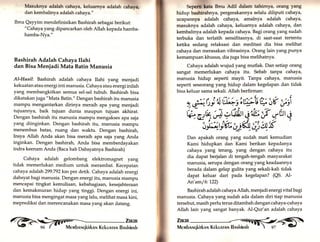 Masuknya adalah cahaya, keluarnya adalah cahaya,
dan kembalinya adalah cahaya."
Ibnu Qayyim mendefinisikan Bashirah sebagai berikut
"Cahaya yang dipancarkan oleh Allah kepada hamba-
hamba-Nya."
Bashirah Adalah Cahaya Ilahi
dan Bisa Menjadi Mata Batin Manusia
Al-Hasil: Bashirah adalah cahaya Ilahi yang menjadi
kekuatan atau energi inti manusia. Cahaya atau energi inilah
yang membangkitkan semua sel-sel tubuh. Bashirah bisa
dikatakan juga "Mata Batin." Dengan bashirah itu manusia
mampu mengantarkan dirinya meraih apa yang menjadi
tujuannya, baik tujuan dunia maupun tujuan akhirat.
Dengan bashirah itu manusia mampu mengakses apa saja
yang diinginkan. Dengan bashirah itu, manusia mampu
menembus batas, ruang dan waktu. Dengan bashirah,
Insya Allah Anda akan bisa meraih apa saja yang Anda
inginkan. Dengan bashirah, Anda bisa memberdayakan
indra keenam Anda (Baca bab Dahsyatnya Bashirah)
Cahaya adalah gelombang elektromagnet yang
tidak memerlukan medium untuk merambat. Kecepatan
cahaya adalah 299.792 km per detik. Cahaya adalah energi
dahsyat bagi manusia. Dengan energi itu, manusia mampu
mencapai tingkat kemuliaan, kebahagiaan, kesejahteraan
dan kemakmuran hidup yang tinggi. Dengan energi ini,
manusia bisa mengingat masa yang lalu, melihat masa kini,
memprediksi dan merencanakan masa yang akan datang.
Seperti kata Ibnu Adil dalam tafsirnya, orang yang
hidup bashirahnya, pergerakannya selalu diliputi cahaya,
ucapannya adalah cahaya, amalnya adalah cahaya,
masuknya adalah cahaya, keluarnya adalah cahaya, dan
kembalinya adalah kepada cahaya. Bagi orang yang sudah
terbuka dan terlatih sensifitasnya, di saat-saat tertentu
ketika sedang relaksasi dan meditasi dia bisa melihat
cahaya dan merasakan vibrasinya. Orang lain yang punya
kemampuan khusus, dia juga bisa melihatnya.
Cahaya adalah wujud yang mutlak. Dan setiap orang
sangat memerlukan cahaya itu. Sebab tanpa cahaya,
manusia hidup seperti mayit. Tanpa cahaya, manusia
seperti seseorang yang hidup dalam kegelapan dan tidak
bisa keluar sama sekali. Allah berfirman:
Dan apakah orang yang sudah mati kemudian
Kami hidupkan dan Kami berikan kepadanya
cahaya yang terang, yang dengan cahaya itu
dia dapat berjalan di tengah-tengah masyarakat
manusia, serupa dengan orang yang keadaannya
berada dalam gelap gulita yang sekali-kali tidak
dapat keluar dari pada kegelapan? (QS. Al-
An'am/6: 122)
Bashirah adalah cahaya Allah, menjadi energi vital bagi
manusia. Cahaya yang sudah ada dalam diri tiap manusia
tersebut, masih perlu terus ditambah dengan cahaya-cahaya
Allah lain yang sangat banyak. Al-Qur'an adalah cahaya
Membangkitkan Kekuatan Bashirah
Membangkitkan Kekuatan Bashirah